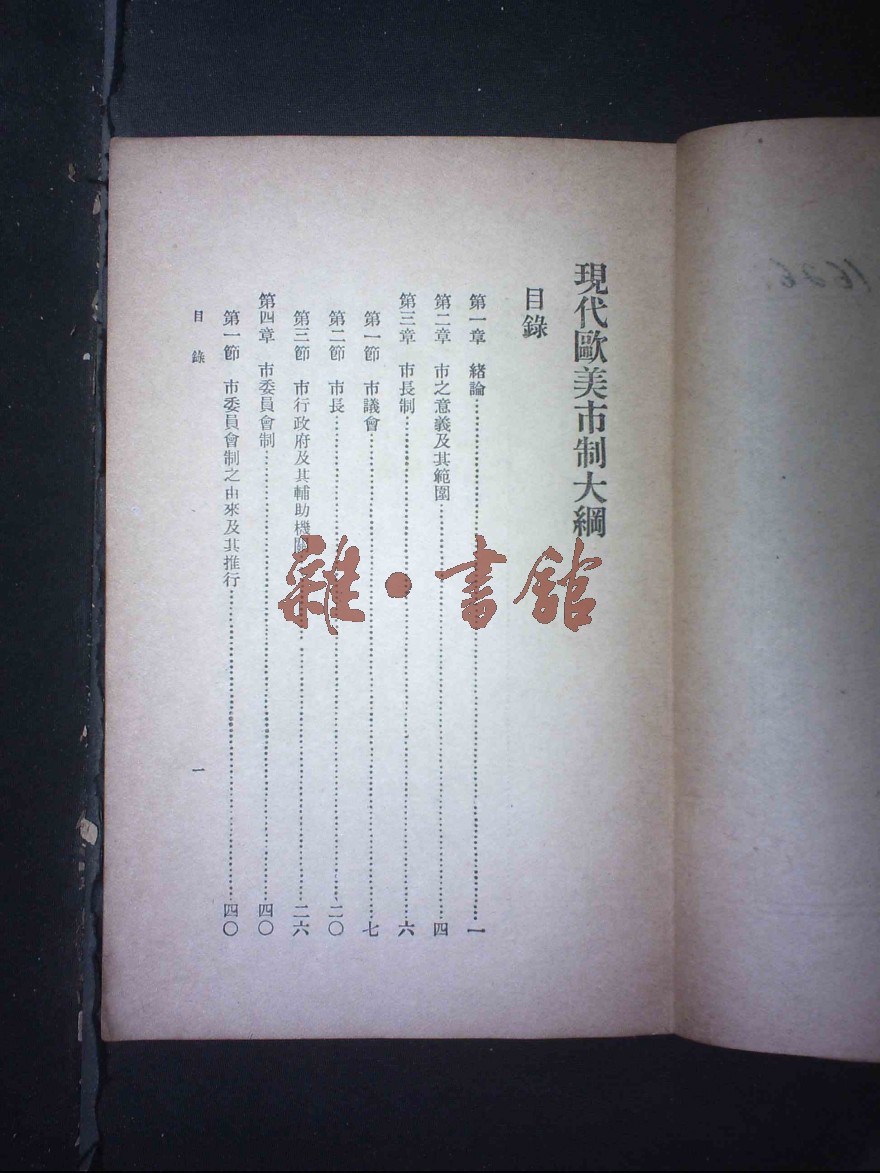 現代歐美市制大綱
目錄
第一章 緒論⋯⋯一
第二章 市之意義及其範圍⋯⋯四
第三章 市長制⋯⋯六
第一節 市議會⋯⋯七
第二節 市長⋯⋯二〇
第三節 市行政府及其輔助機關⋯⋯二六
第四章 市委員會制⋯⋯四〇
第一節 市委員會制之由來及其推行⋯⋯四〇
目錄 一
雜·書館